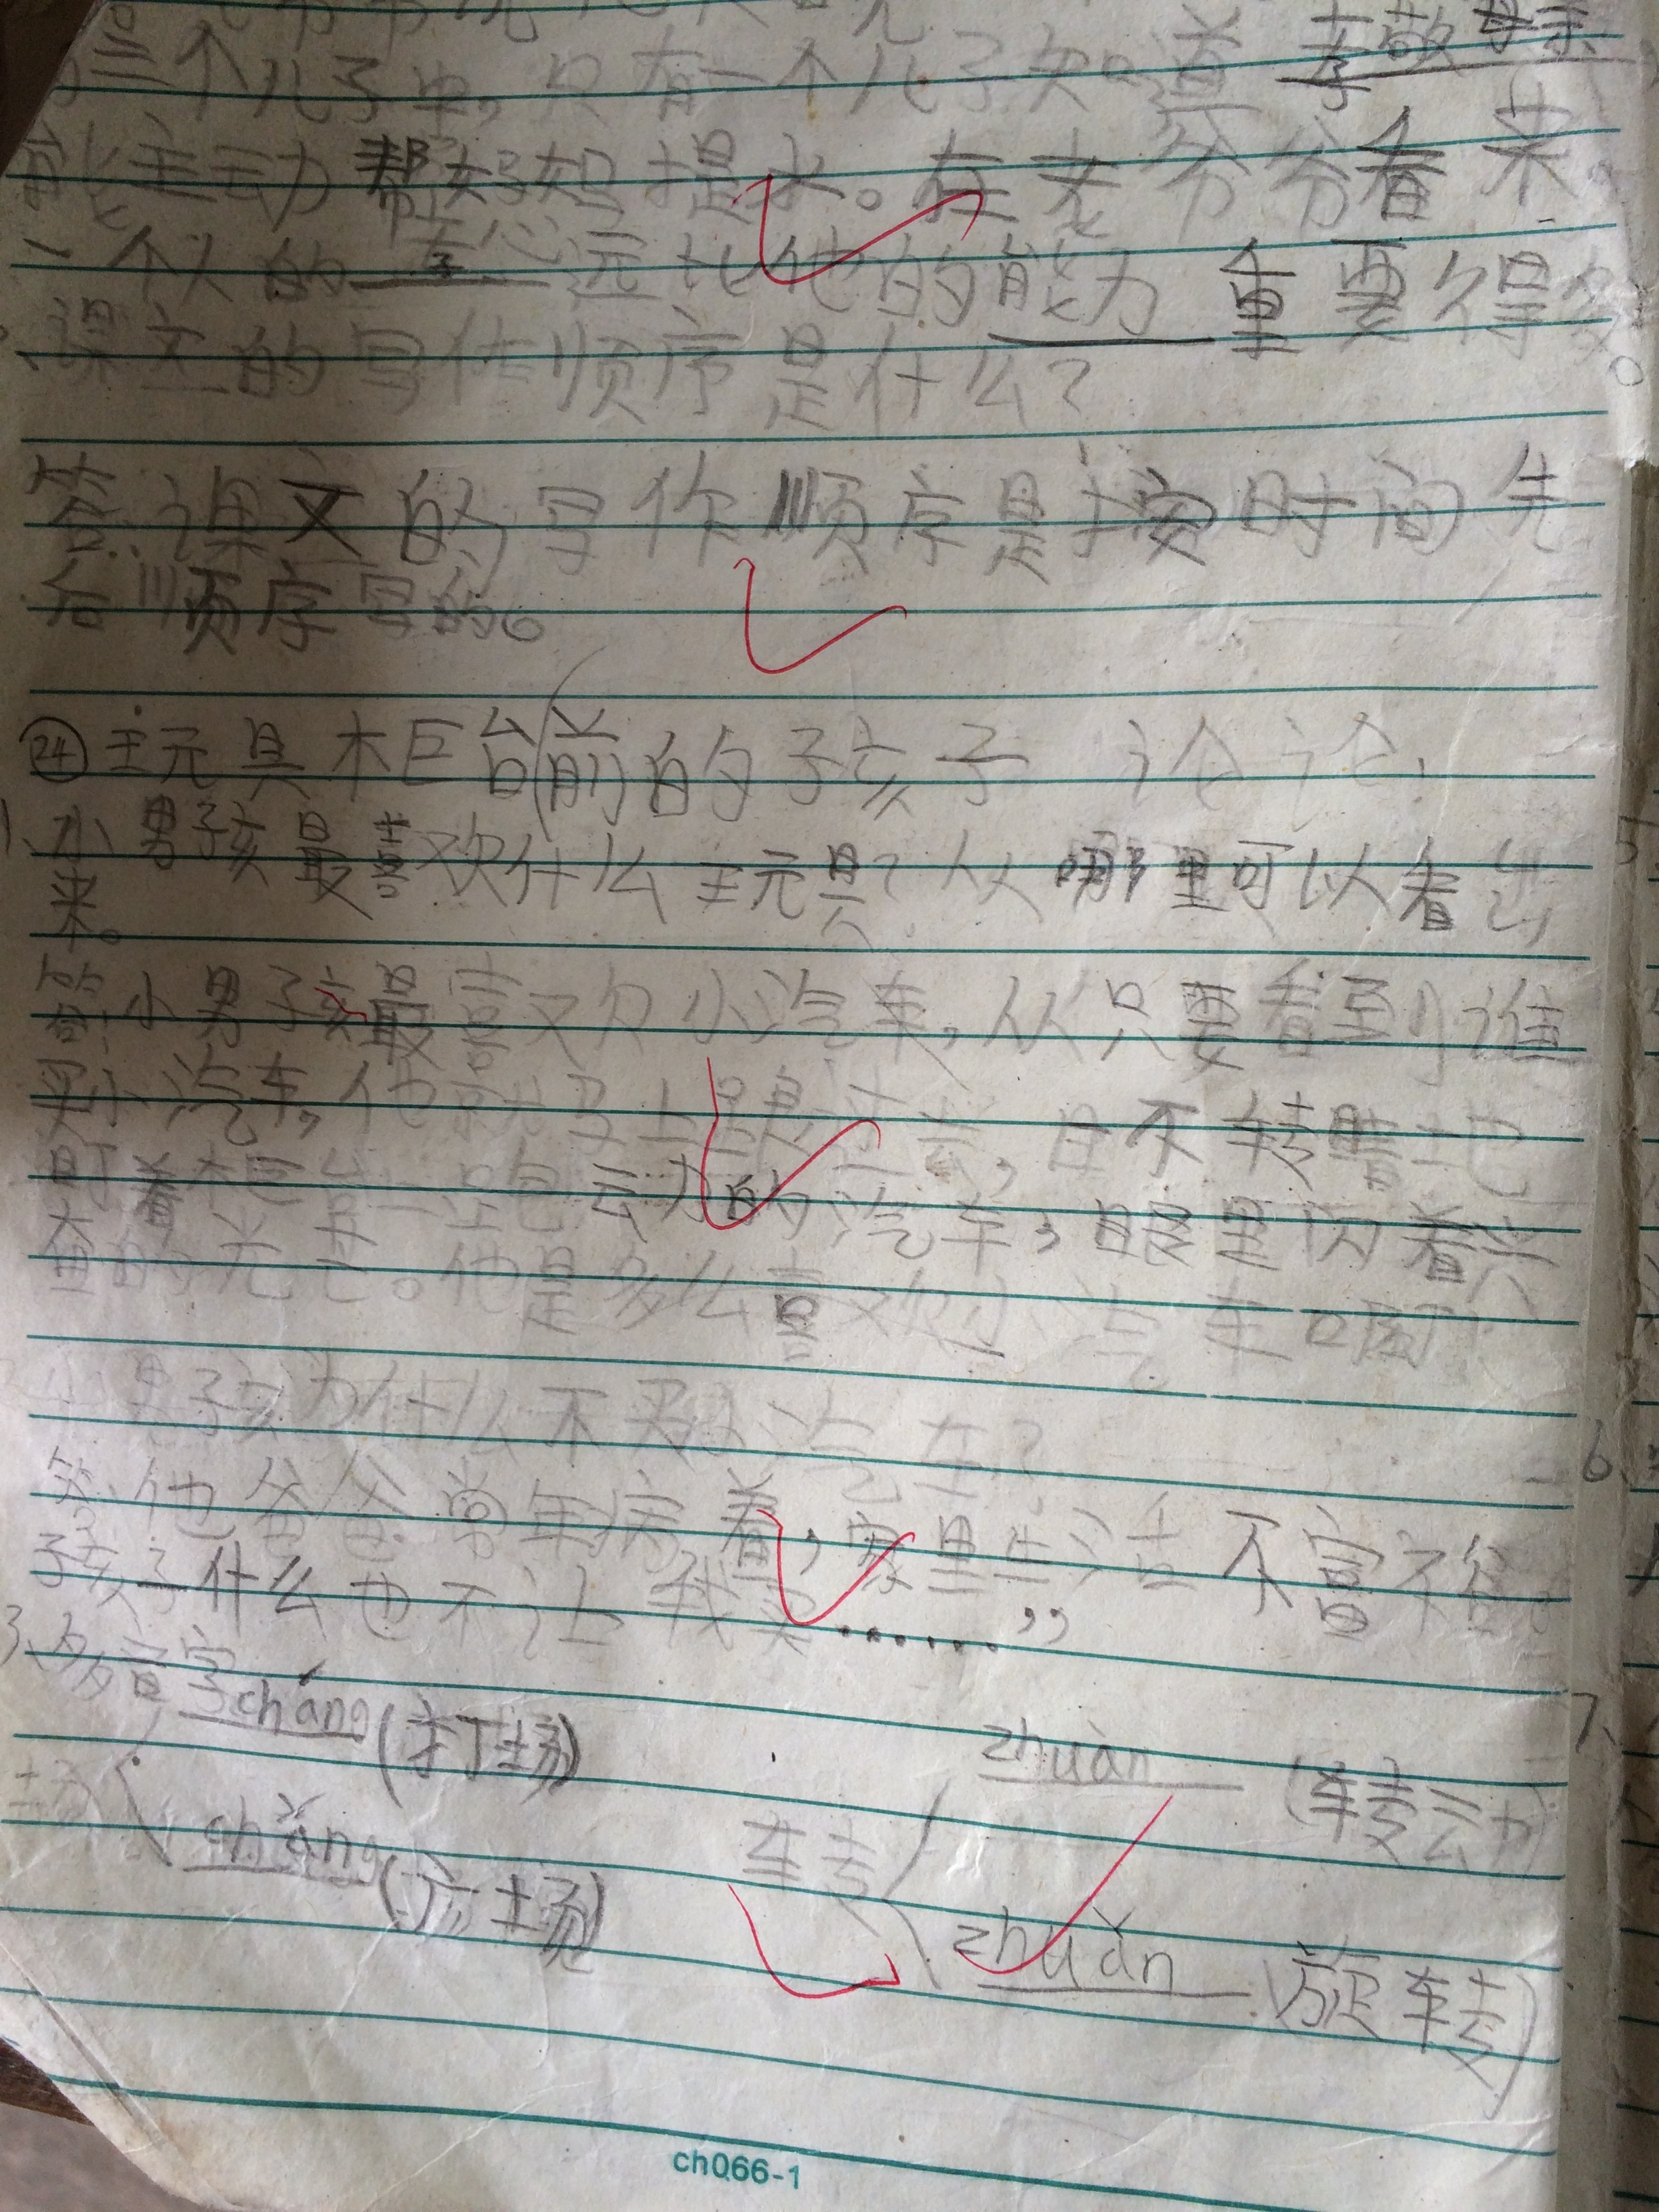 三个儿子中,只有一个儿子知道 孝敬母亲
能主动帮妈妈提水。在老爷爷看来。
一个人的孝心远比他的能力重要得多。
课文的写作顺序是什么?
答:课文的写作顺序是按时间先
后顺序写的。
㉔玩具柜台前的孩子 讨论
1、小男孩最喜欢什么玩具?从哪里可以看出
来。
答:小男孩最喜欢小汽车,从只要看到谁
买小汽车,他就马上跟过去,目不转睛地
盯着柜台上跑动的汽车,眼里闪着兴
奋的光芒。他是多么喜欢小汽车啊
小男孩为什么不买小汽车?
答:他爸爸常年病着,家里生活不富裕。
孩子什么也不让我买……”
3、多音字
cháng(打场)
场
chǎng(广场)
zhuàn(转动)
转
zhuǎn(旋转)
5、
6、
7、
ch066-1